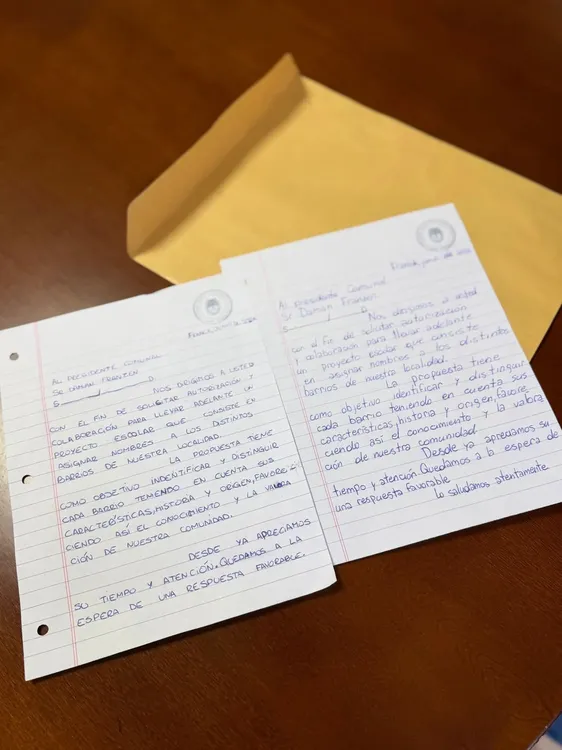 AL PRESIDENTE COMUNAL
SR DAMIAN FRANZEN
S / D
NOS DIRIGIMOS A USTED
CON EL FIN DE SOLICITAR AUTORIZACIÓN Y
COLABORACIÓN PARA LLEVAR ADELANTE UN
PROYECTO ESCOLAR QUE CONSISTE EN
ASIGNAR NOMBRES A LOS DISTINTOS
BARRIOS DE NUESTRA LOCALIDAD.
LA PROPUESTA TIENE
COMO OBJETIVO INDENTIFICAR Y DISTINGUIR
CADA BARRIO TENIENDO EN CUENTA SUS
CARACTERÍSTICAS, HISTORIA Y ORIGEN, FAVORE
CIENDO ASÍ EL CONOCIMIENTO Y LA VALORA
CIÓN DE NUESTRA COMUNIDAD.
DESDE YA APRECIAMOS
SU TIEMPO Y ATENCIÓN. QUEDAMOS A LA
ESPERA DE UNA RESPUESTA FAVORABLE.
Al presidente Comunal
Sr Damian Franzen
S / D
Nos dirigimos a usted
con el fin de solicitar autorización
y colaboración para llevar adelante
un proyecto escolar que consiste
en asignar nombres a los distintos
barrios de nuestra localidad.
La propuesta tiene
como objetivo identificar y distinguir
cada barrio teniendo en cuenta sus
características, historia y origen, favore
ciendo así el conocimiento y la valora
ción de nuestra comunidad.
Desde ya apreciamos su
tiempo y atención. Quedamos a la espera de
una respuesta favorable
lo saludamos atentamente